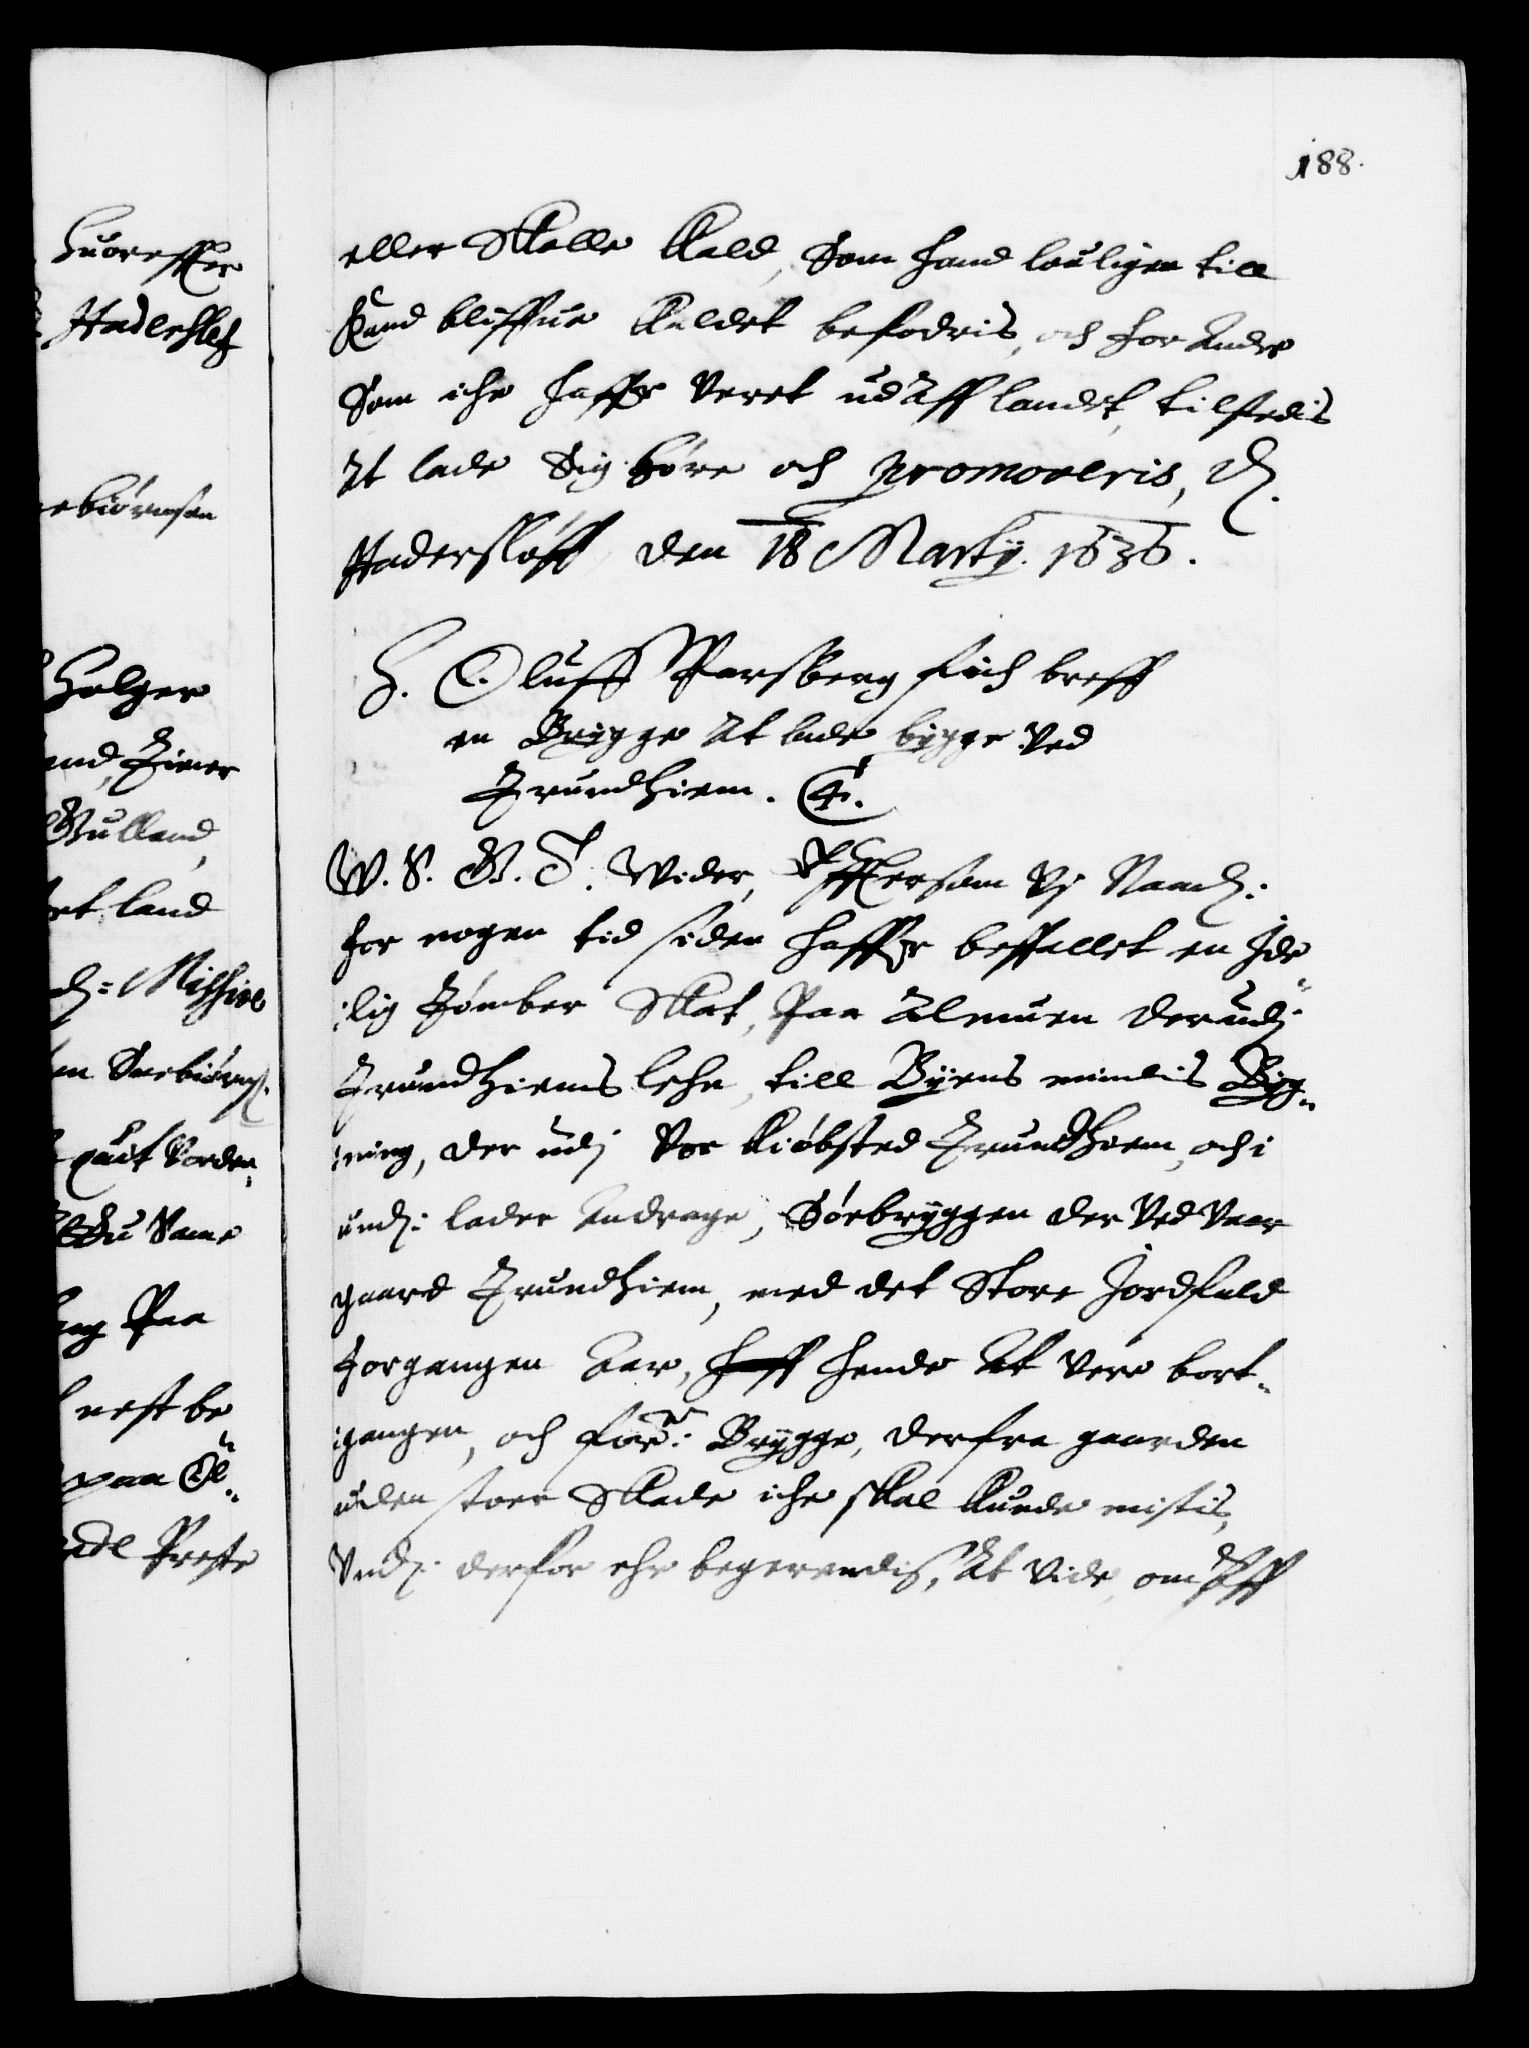 188.
eller Skolle Kald, Som hand louligen till
Kand bliffue Kaldet befodris, och for Andre
Som iche haffr veret ud Aff landet, tilstedis
At lade Sig høre och promoveris, Dh.
Haderslöff den 18 Martij. 1636.
H. Oluff Parsberg fich breff
en Brygge At lade bygge ved
Trundhiem. C4.
W. S. G. T. Wider, Effttersom Vj Naadh:
for nogen tid siden haffr beffallet en Ide
lig Tømber Skat, Paa Almuen der udj
Trundhiems lehn, till Byens nimlis Byg
ning, der udj Vor Kiøbsted Trundhiem, och i
undh: lader Andrage, Søebryggen der Ved Vaar
gaard Trundhiem, med det Store Jordfald
forgangen Aar, hende At vere bort
gangen, och forne: Brygge, derfra gaarden
uden stoer Skade iche skal Kunde mistis,
Vndh: derfor ehr begerendis, At Vide, om Aff
Huorefter
Haderslef
ebiørnsen
Holger
and, Ejner
Gulland,
et land
dh: Missive
en Snebiørnsh.
quit Vorden
Su Same
ng Paa
nest be
paa Øl
Preste